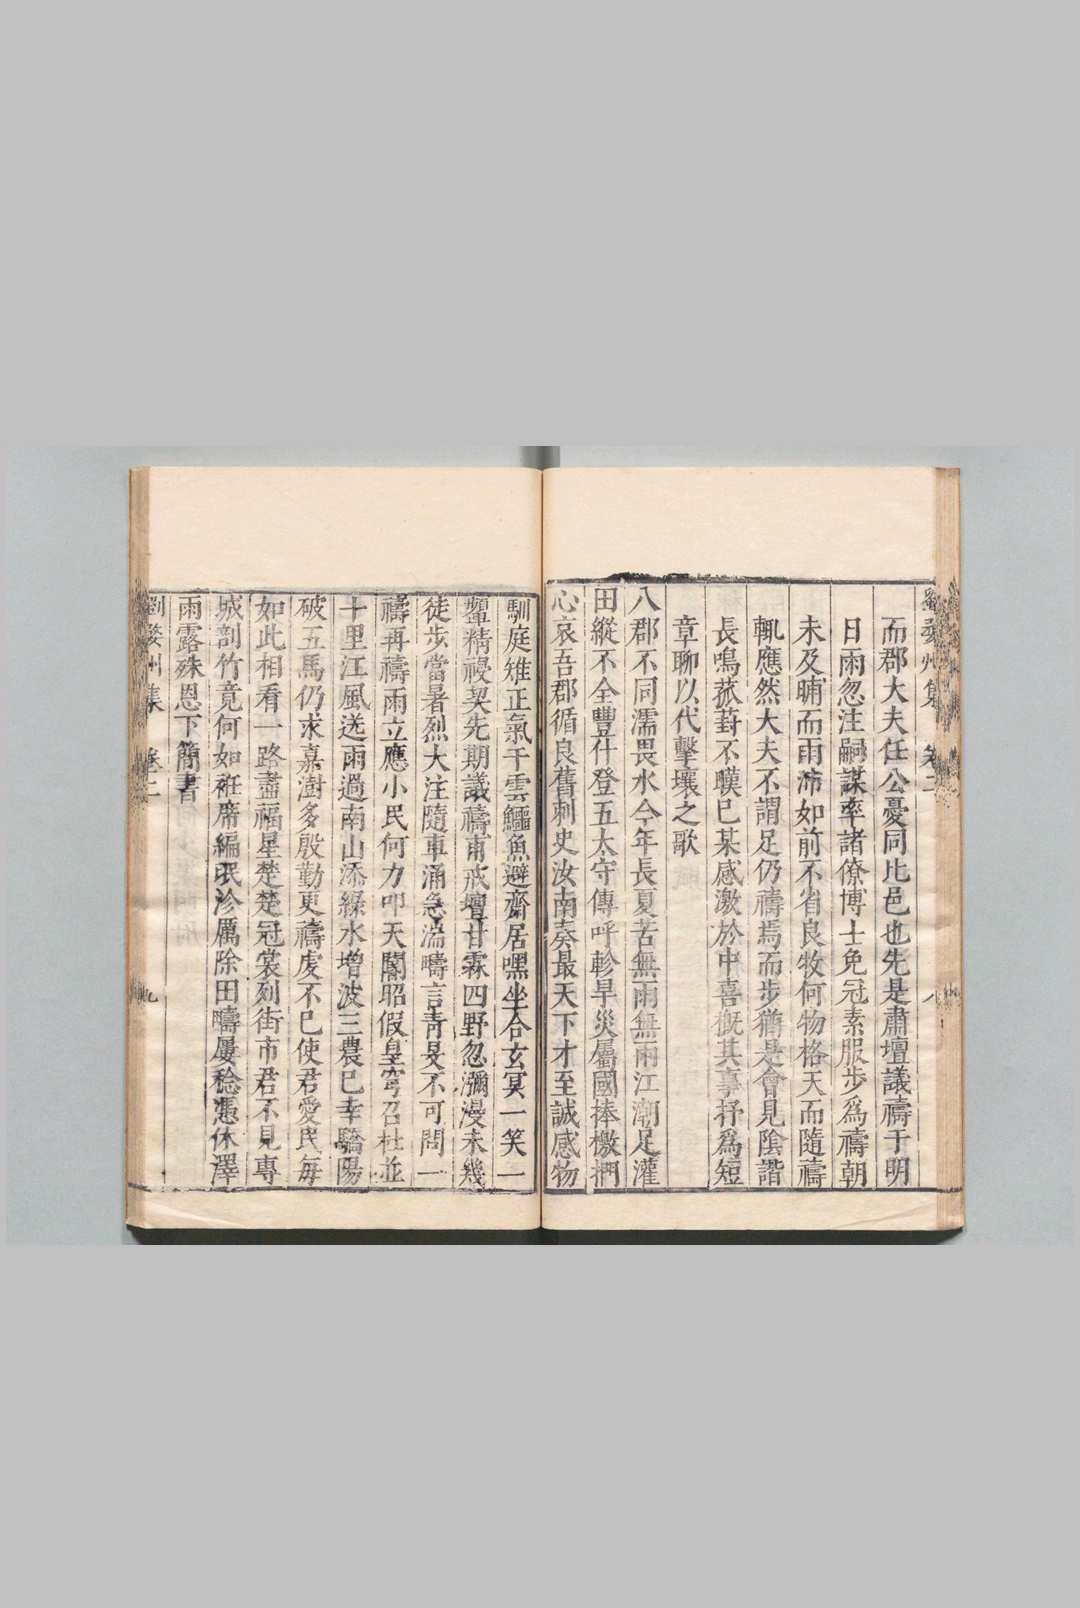 劉婺州集 卷二 八
而郡大夫任公憂同圮邑也先是肅壇議禱于明
日雨忽注嗣謀率諸僚博士免冠素服步為禱朝
未及晡而雨沛如前不省良牧何物格天而隨禱
輒應然大夫不謂足仍禱焉而步猶是會見陰諧
長鳴菰葑不暵已某感激於中喜慨其事抒為短
章聊以代擊壤之歌
八郡不同濡畏水今年長夏苦無雨無雨江潮足灌
田縱不全豐什登五太守傳呼軫旱災屬國捧檄捫
心哀吾郡循良舊刺史汝南奏最天下才至誠感物
馴庭雉正氣干雲鱷魚避齋居嘿坐合玄冥一笑一
顰精祲契先期議禱甫戒壇甘霖四野忽瀰漫未幾
徒步當暑烈大注隨車涌急湍疇言青旻不可問一
禱再禱雨立應小民何力叩天閽昭假皇穹召杜並
十里江風送雨過南山添綠水增波三農已幸驕陽
破五馬仍求嘉澍多殷勤更禱虔不已使君愛民每
如此相看一路盡福星楚楚冠裳列街市君不見專
城剖竹竟何如袵席編氓沴厲除田疇屢稔憑休澤
雨露殊恩下簡書
劉婺州集 卷二 九